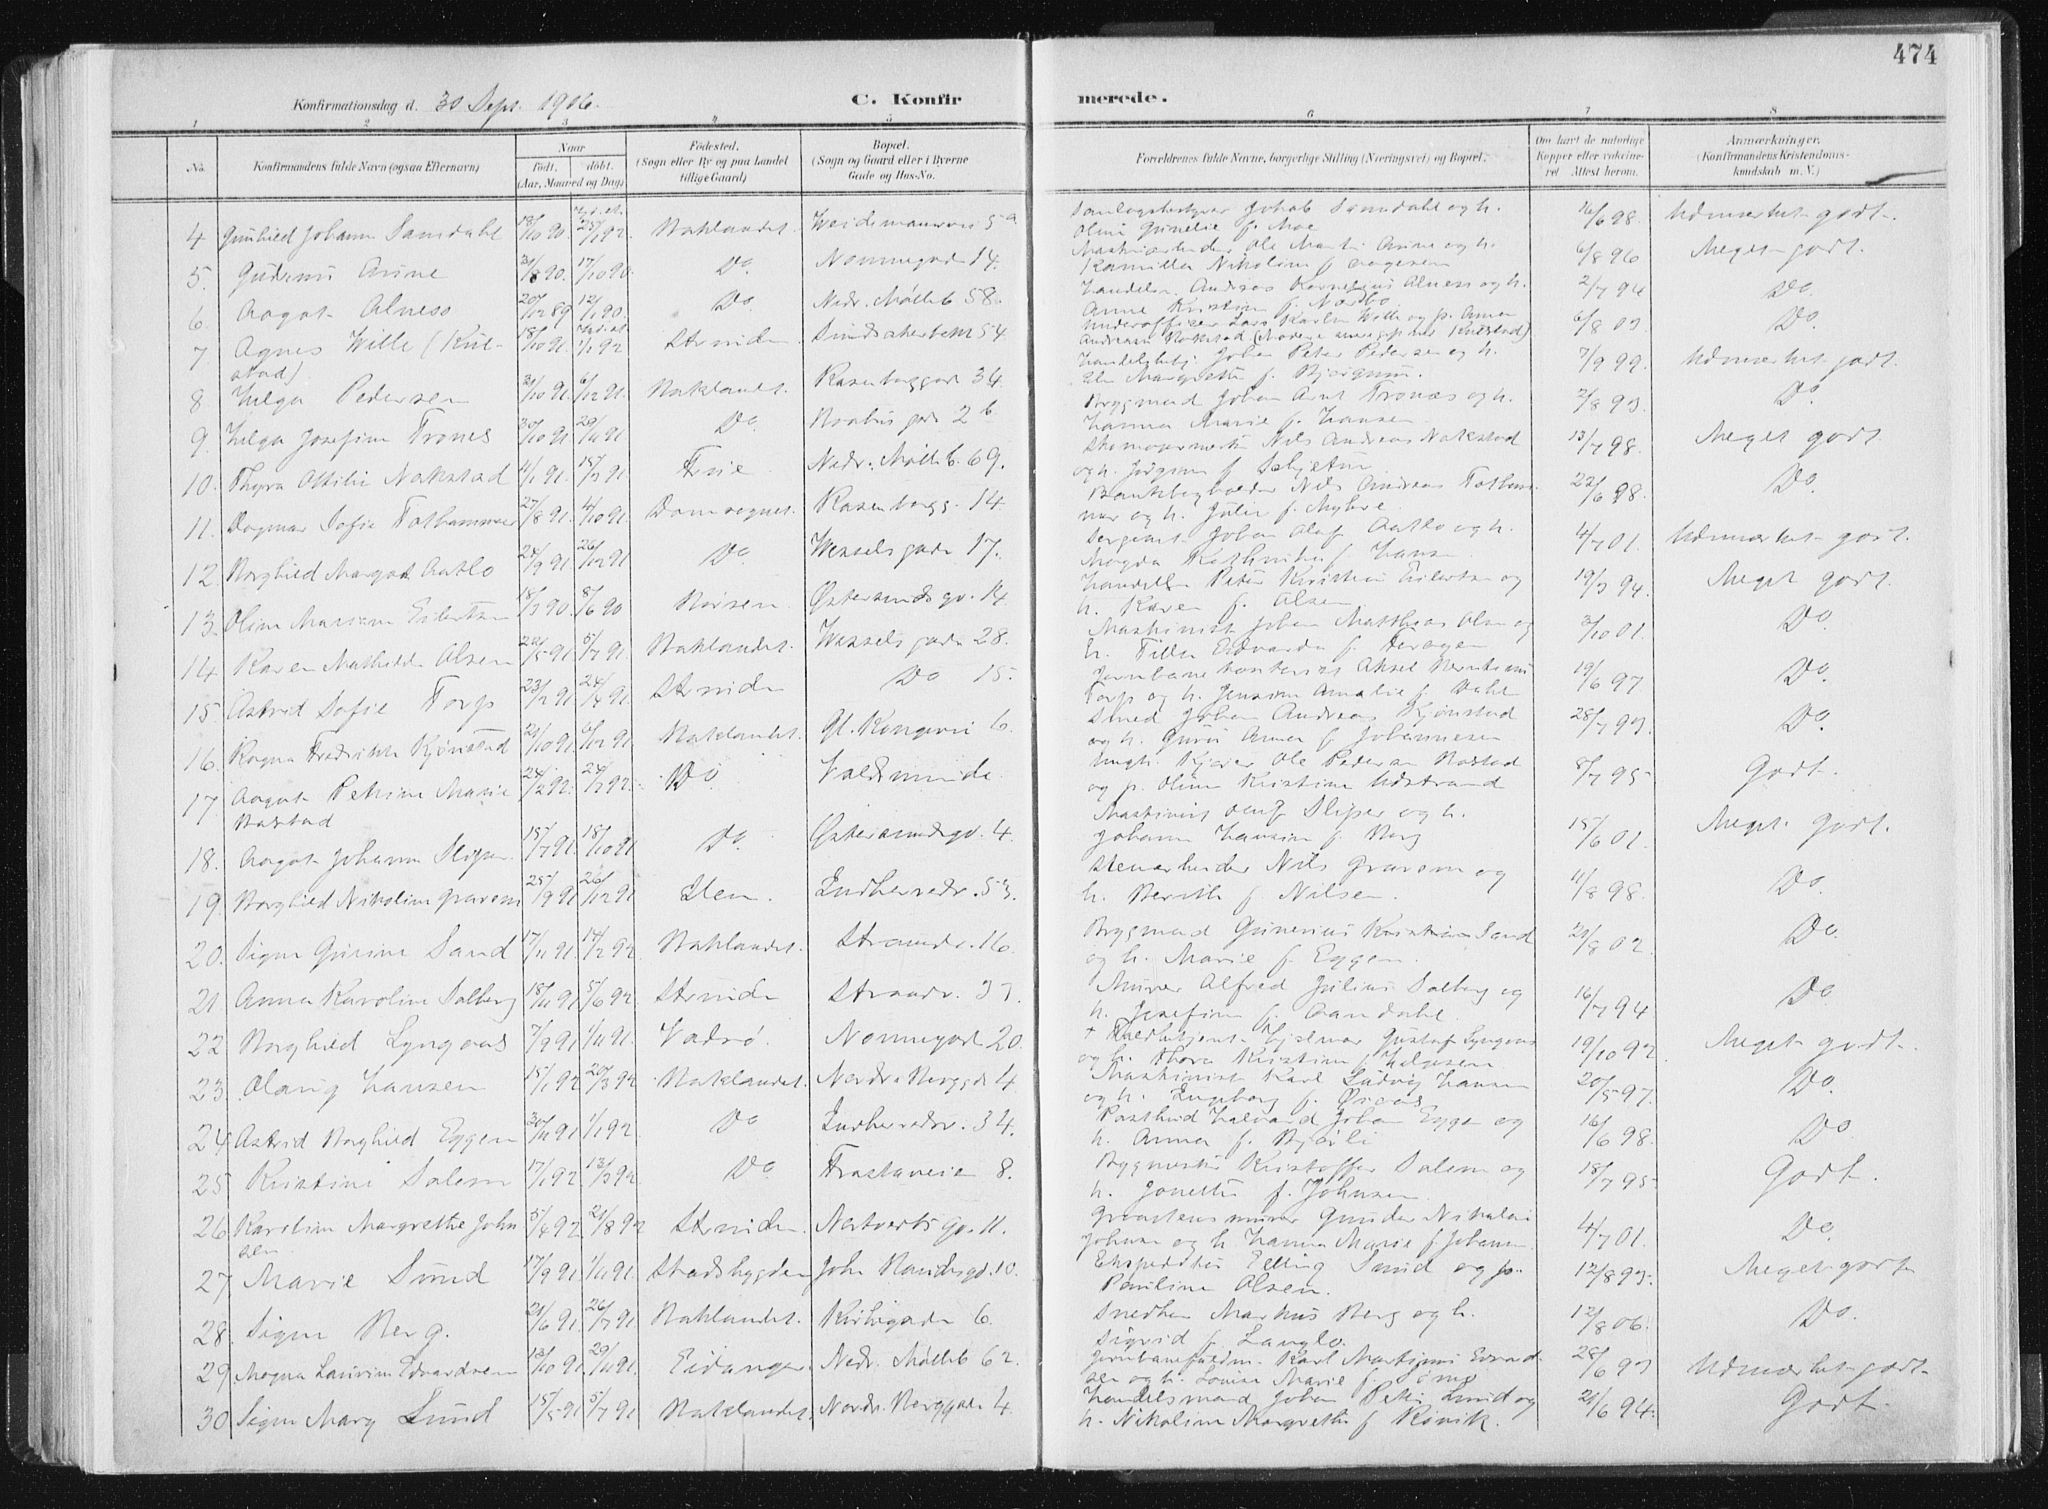 474
Konfirmationsdag d. 30 Sept. 1906. C. Konfirmerede.
1 2 3 4 5 6 7 8
No. Konfirmandens fulde Navn (ogsaa Efternavn) Naar født, døbt. (Aar, Maaned og Dag) Fødested. (Sogn eller By og paa Landet tillige Gaard) Bopæl. (Sogn og Gaard eller i Byerne Gade og Hus-No. Forældrenes fulde Navne, borgerlige Stilling (Næringsvei) og Bopæl. Om havt de naturlige Kopper eller vaccineret. Attest herom. Anmærkninger. (Konfirmandens Kristendomskundskab m. V.)
4 Gunhild Johanne Samdahl 18/10 90. 25/1 92 Baklandet. Weidemannsvei 5a Johab Samdahl og h. Oline f. Moe 16/6 98. Udmærket godt.
5. Arine 31/8 90. 17/10 90. Do. Nonnegad 14. Ole Martin Arine og h. Kamilla Nikoline f. Aagesen 6/8 96 Meget godt.
6 Aagot Alness 20/12 89 12/1 90. Do. Nedr. Mølleb 58. Andreas Kornelius Alness og h. Anne Kristine f. Nærbo 2/7 94 Do.
7 Agnes Wille (Kulstad) 18/10 91. 1/1 92 Strinden Underofficer Lars Karlin Wille og p. Anna 6/8 03 Do.
8 Helga Pedersen 31/10 91. 6/12 91. Baklandet. Rosenborggad 34. Johan Peter Pedersen og h. Margrethe f. 7/9 99. Udmærket godt.
9. Helga Josefine Trones 30/10 91 29/11 91 Do. 26. Brygmand Johan Arnt Tronæs og h. Hanna Marie f. Hansen 2/8 93 Do.
10. Thyra Ottilie Nakstad 11/1 91. 15/3 91 Frue Nedr. Mølleb. 69. Skomagermester Nils Andreas Nakstad og h. Jørgine f. 13/7 98. Meget godt.
11. Dagmar Sofie Tothammer 27/8 91. 4/10 91. Domsognet. Rosenborgg. 14. Bankbogholder Nils Andreas Tothammer og h. Julie f. Myhre. 22/6 98. Do.
12 Borghild Margot Aatlo 24/9 91 26/12 91 Do. Wesselsgade 17. Sergeant Johan Olaf Aatlo og h. Magda Kathinka f. Hansen 4/7 01. Udmærket godt.
13. Oline Mariane Eilertsen 18/3 90. 8/6 90 Børsen Østersundsgd. 14 Peter Kristian Eilertsen og h. Karen f. Olsen 19/3 94. Meget godt.
14 Karen Mathilde Olsen 22/5 91 5/7 91. Baklandet. Wesselsgade 28. Maskinist Johan Matthias Olsen og h. Tilla Edvarda f. 3/10 01. Do.
15. Astrid Sofie Torp 23/2 91 24/4 91. Strinden Do 15. Aksel Berntsen Torp og h. Jensine Amalie f. Dahl 19/6 97 Do.
16. Ragna Fredrikke Kjønstad 21/10 91. 6/12 91 Baklandet. Gl. Kongevei 6. Smed Johan Andreas Kjønstad og h. Guro Anna f. Johannesen 28/7 93. Do.
17 Aagot Petrine Marie Rostad 24/2 92. 24/3 92. Do. Valdminde Ungk. Kjører Ole Pedersen Rostad og p. Oline Kristine Udstrand 8/7 95 Godt.
18. Aagot Johanne Sliper 15/7 91. 18/10 91 Do. Østersundsgd. 4. Maskinist Oluf Sliper og h. Johanne Hansine f. Berg 15/6 01. Meget godt.
19. Borghild Nikoline Gravem 25/9 91 26/12 91 Sten. Indherredv. 53. Stenarbeider Nils Gravem og h. Berith f. Nilsen. 11/8 98. Do.
20. Signe Gurine Sand 17/11 91. 14/2 92 Baklandet. Strandv. 16. Brygmand Gunerius Kristian Sand og h. Marie f. Eggen. 29/8 02. Do.
21 Anna Karoline Solberg 18/11 91 5/6 92. Strinden Strandv. 37. Murer Alfred Julius Solberg og h. Josefine f. Aandahl. 16/7 94 Do.
22 Borghild Lyngaas 7/9 91 1/11 91. Vadsø. Nonnegad 20. + Hjelmar Gustaf Lyngaas og h. Thora Kristine f. Helgesen 19/10 92. Meget godt.
23. Olaug Hansen 15/1 92 20/3 92 Baklandet. Nordre Berggd 4. Maskinist Karl Ludvig Hansen og h. Ingeborg f. Øiaas 20/5 97. Do.
24 Astrid Borghild Eggen 30/11 91 1/1 92. Do Indherredv. 34. Postbud Halvard Johan Eggen og h. Anna f. Bjørli 16/6 98. Do.
25. Kristine Solem 17/1 92. 13/3 92. Do. Frostaveien 8. Bygmester Kristoffer Solem og h. Jonette f. Johnsen. 18/7 95. Godt.
26. Karoline Margrethe Johnsen 5/4 92 21/8 92 Strinden Nertvertsgd. 11. Graastensmurer Gunder Nikolai Johnsen og h. Hanna Marie f. Johansen. 4/7 01. Do.
27 Marie Sund 17/9 91. 1/11 91. Stadsbygden John Randesgd. 10. Ekspeditør Elling Sund og p. Pauline Olsen. 12/8 93. Meget godt
28. Signe Berg. 21/6 91. 26/7 91 Baklandet. Kirkegaden 6. Snedker Markus Berg og h. Sigrid f. Langlo. 12/8 06. Do.
29. Magna Laurine Edvardsen 13/10 91 29/11 91. Eidanger. Nedr. Mølleb 62. Karl Martinius Edvardsen og h. Louise Marie f. 28/6 93 Udmærket godt.
30. Signe Mary Lund 15/5 91 5/7 91 Baklandet. Nordr. Berggade 4. Handelsmand Johan Peter Lund og h. Nikoline Margrethe f. Rønvik. 21/6 94. Godt.